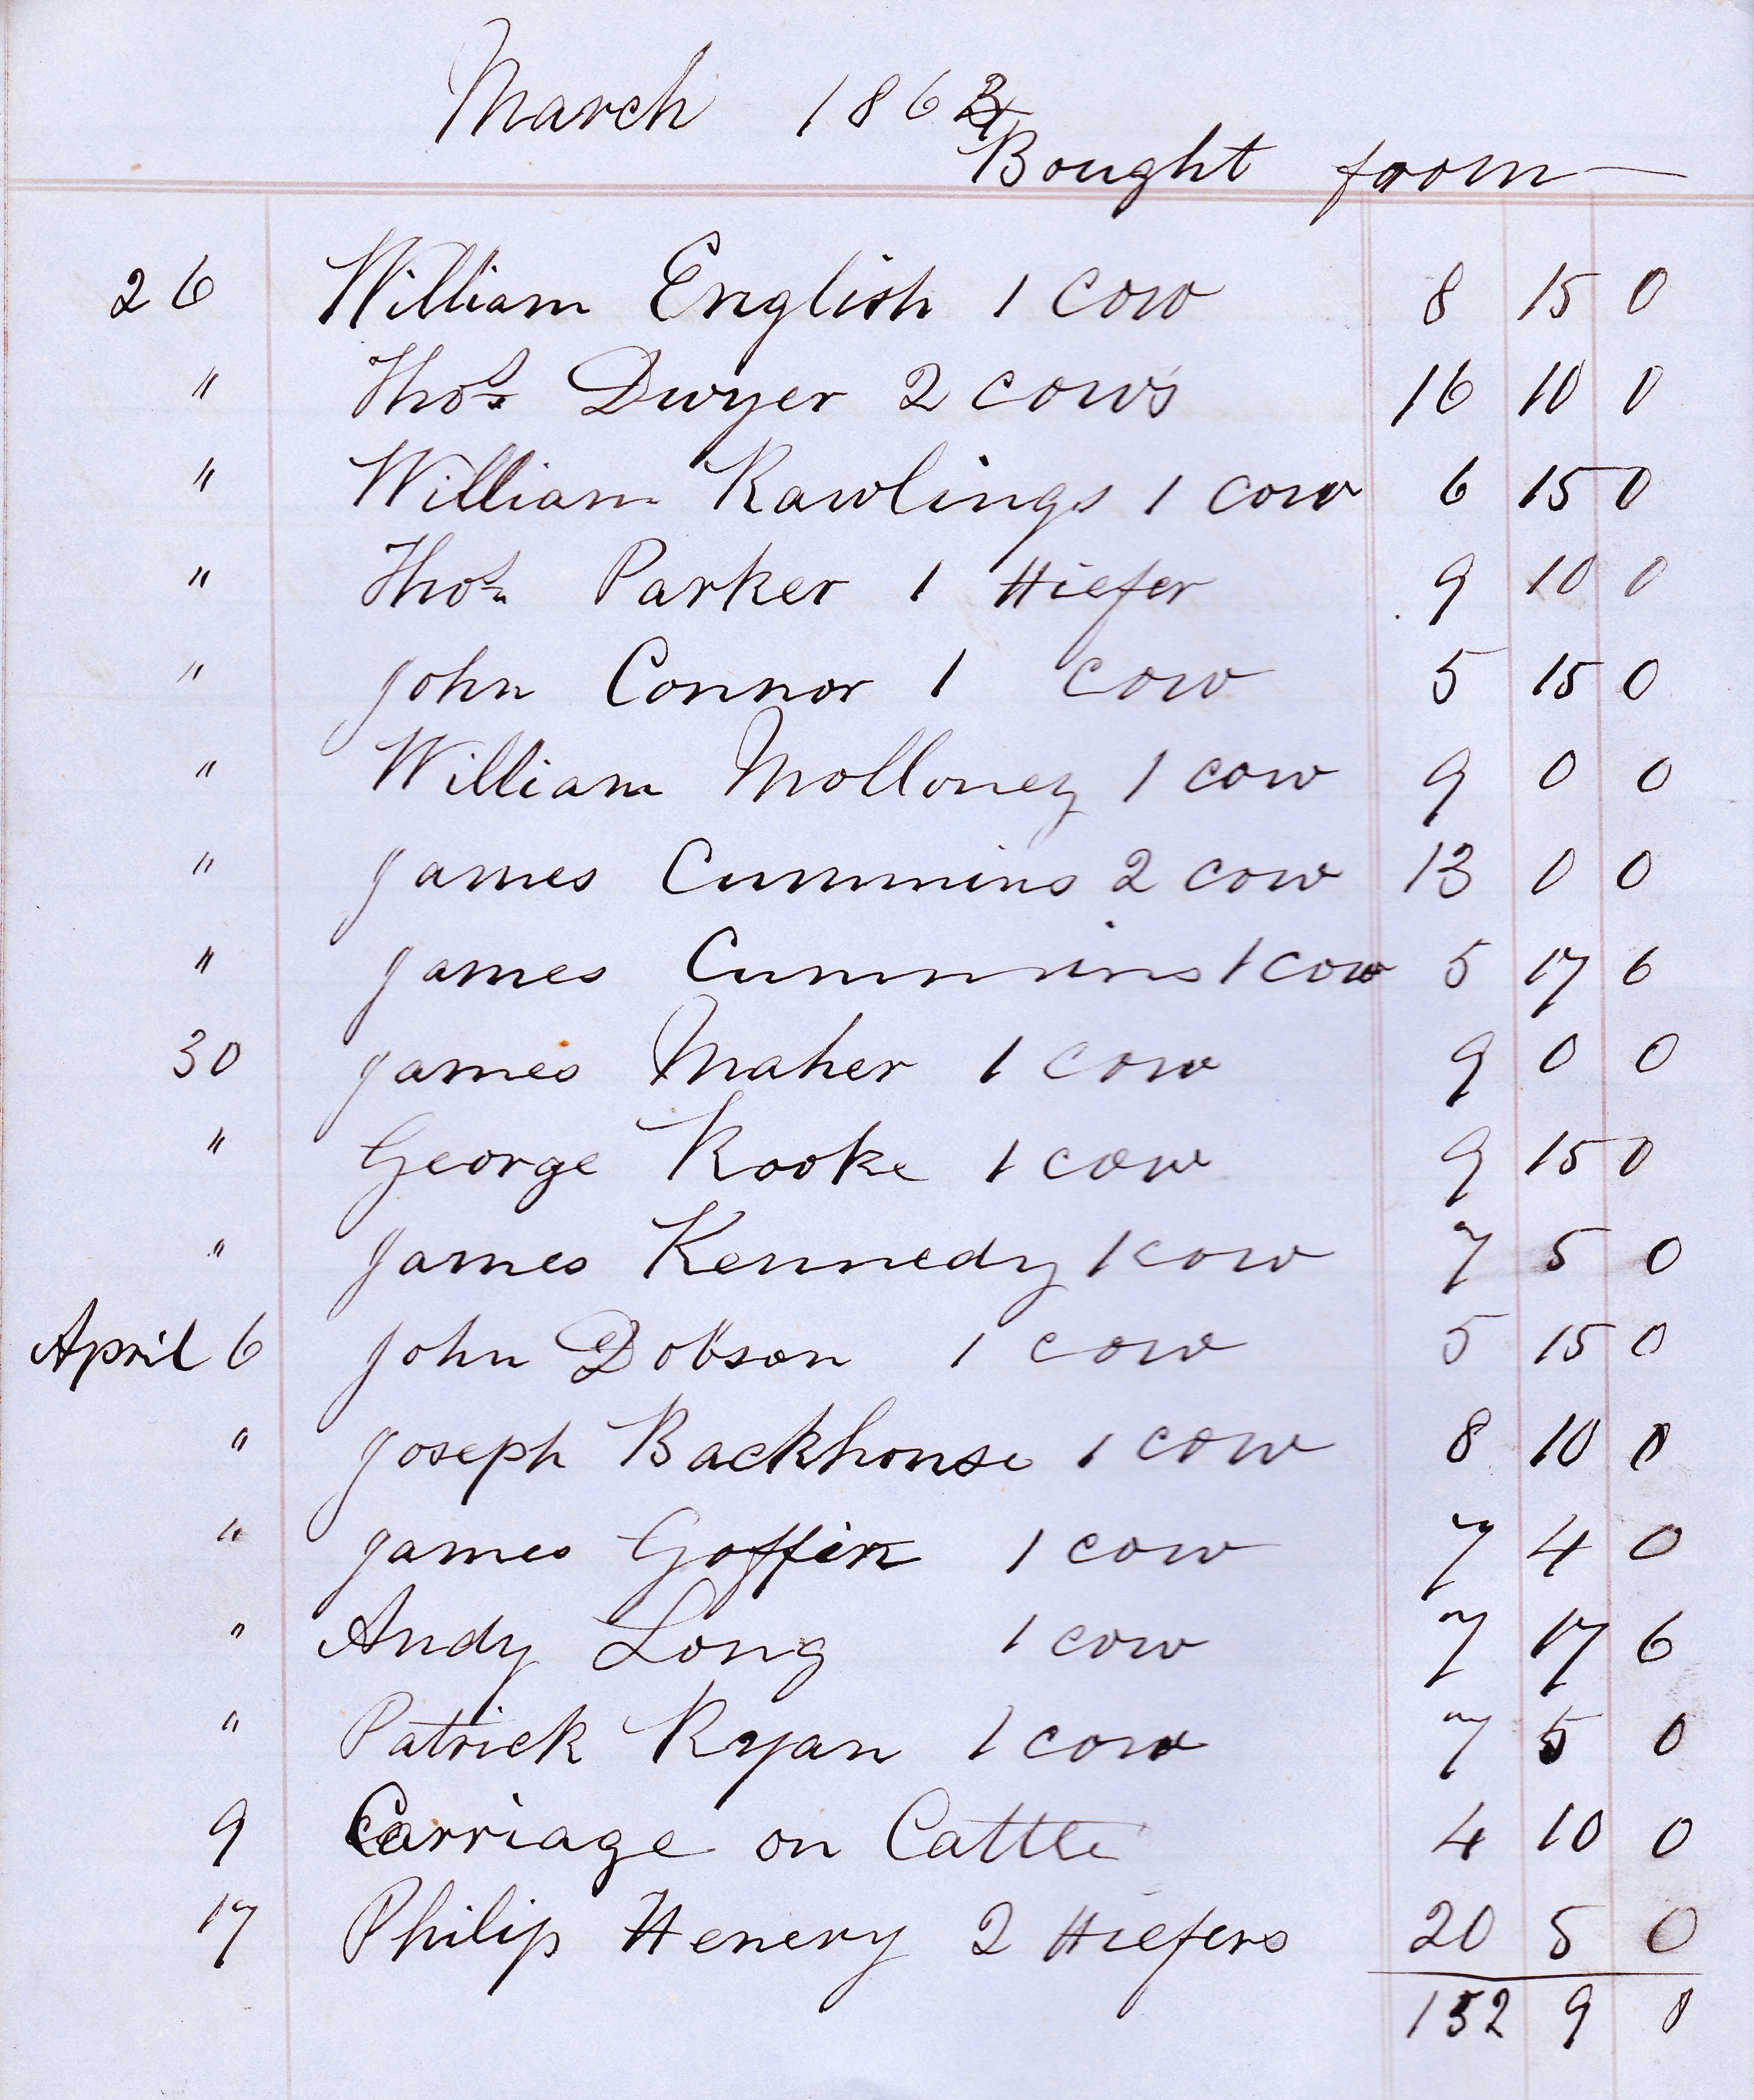 March 1863
Bought from
26 William English 1 Cow 8 15 0
" Thos Dwyer 2 Cows 16 10 0
" William Rawlings 1 Cow 6 15 0
" Thos Parker 1 Hiefer 9 10 0
" John Connor 1 Cow 5 15 0
" William Molloney 1 Cow 9 0 0
" James Cummins 2 Cow 13 0 0
" James Cummins 1 Cow 5 17 6
30 James Maher 1 Cow 9 0 0
" George Rooke 1 Cow 9 15 0
" James Kennedy 1 Cow 7 5 0
April 6 John Dobson 1 Cow 5 15 0
" Joseph Backhouse 1 Cow 8 10 0
" James Goffin 1 Cow 7 4 0
" Andy Long 1 Cow 7 17 6
" Patrick Ryan 1 Cow 7 5 0
9 Carriage on Cattle 4 10 0
17 Philip Henery 2 Hiefers 20 5 0
152 9 0